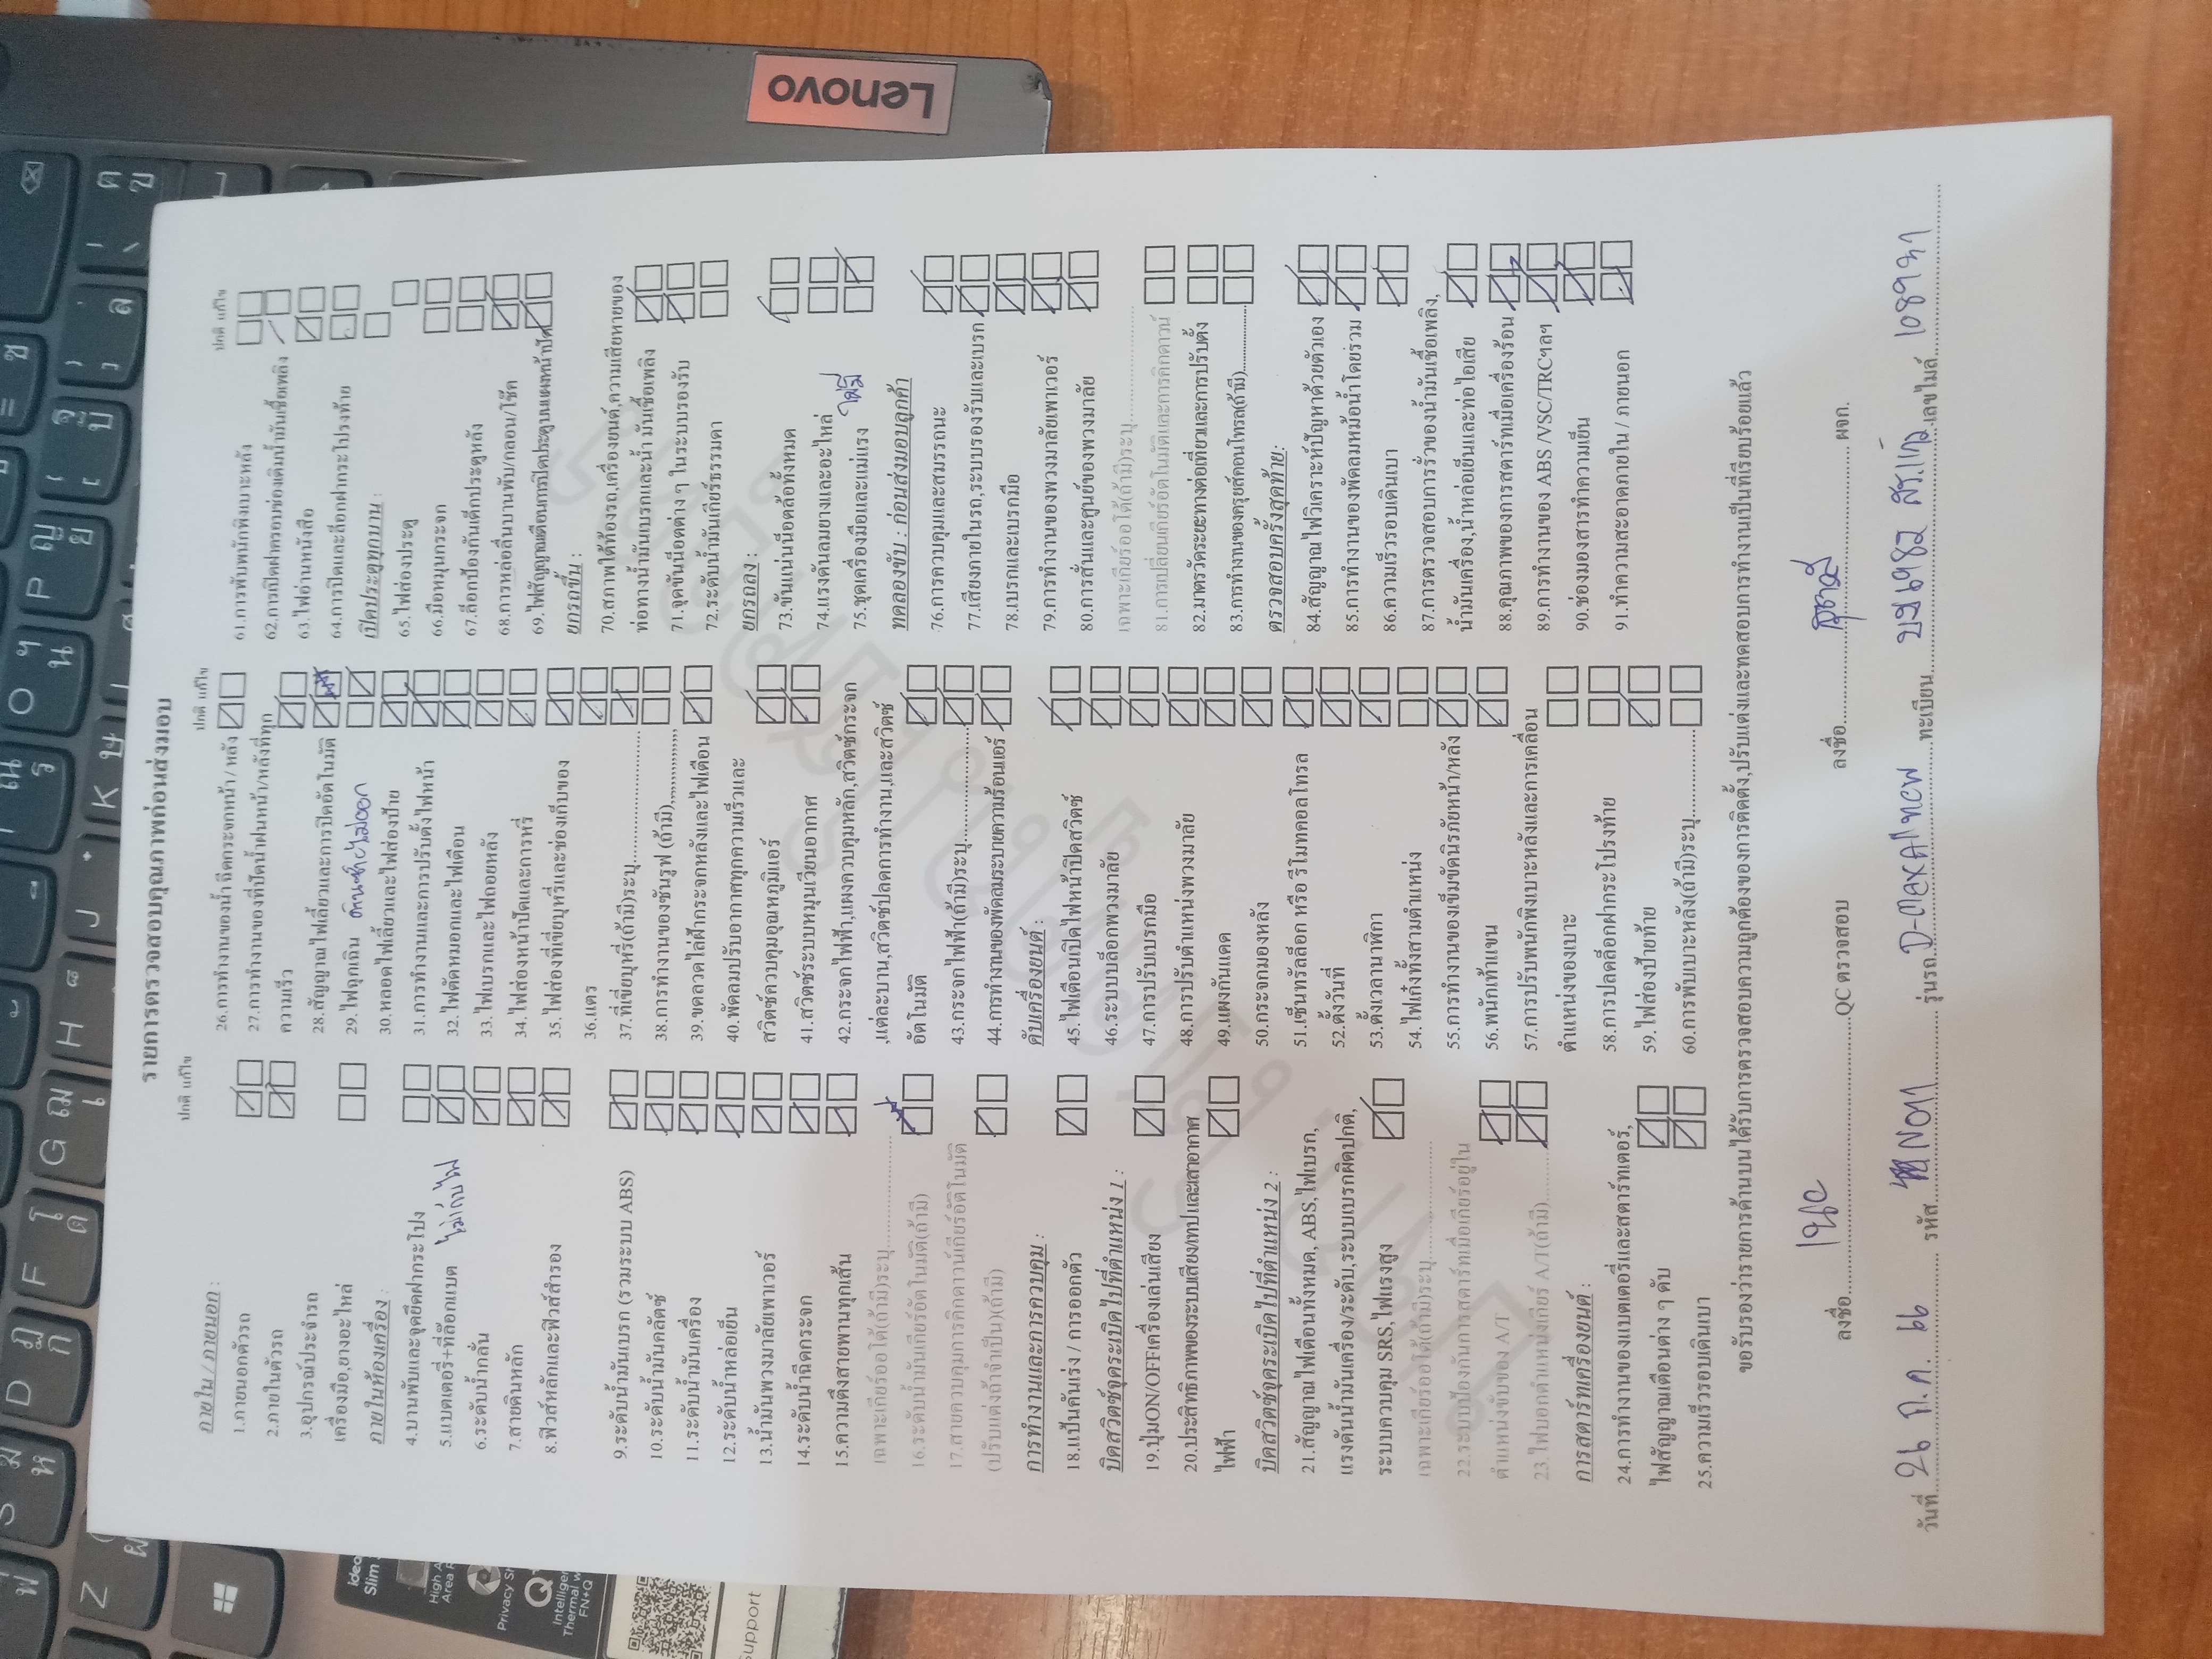 รายการตรวจสอบคุณภาพก่อนส่งมอบ
ปกติ แก้ไข
ภายใน / ภายนอก :
1.ภายนอกตัวรถ
2.ภายในตัวรถ
3.อุปกรณ์ประจำรถ
เครื่องมือ,ยางอะไหล่
ภายในห้องเครื่อง :
4.บานพับและจุดยึดฝากระโปง
5.แบตเตอรี่+ที่ล๊อกแบต ไม่เก็บไฟ
6.ระดับน้ำกลั่น
7.สายดินหลัก
8.ฟิวส์หลักและฟิวส์สำรอง
9.ระดับน้ำมันเบรก (รวมระบบ ABS)
10.ระดับน้ำมันคลัตซ์
11.ระดับน้ำมันเครื่อง
12.ระดับน้ำหล่อเย็น
13.น้ำมันพวงมาลัยพาเวอร์
14.ระดับน้ำฉีดกระจก
15.ความตึงสายพานทุกเส้น
เฉพาะเกียร์ออโต้(ถ้ามี)ระบุ
16.ระดับน้ำมันเกียร์อัตโนมัติ(ถ้ามี)
17.สายควบคุมการคิกดาวน์เกียร์อัติโนมัติ
(ปรับแต่งถ้าจำเป็น)(ถ้ามี)
การทำงานและการควบคุม :
18.แป้นคันเร่ง / การออกตัว
บิดสวิตช์จุดระเบิดไปที่ตำแหน่ง 1 :
19.ปุ่มON/OFFเครื่องเล่นเสียง
20.ประสิทธิภาพของระบบเสียง/เทปและเสาอากาศ
ไฟฟ้า
บิดสวิตช์จุดระเบิดไปที่ตำแหน่ง 2 :
21.สัญญาณไฟเตือนทั้งหมด, ABS,ไฟเบรก,
แรงดันน้ำมันเครื่อง/ระดับ,ระบบเบรกผิดปกติ,
ระบบควบคุม SRS,ไฟแรงสูง
เฉพาะเกียร์ออโต้(ถ้ามี)ระบุ
22.ระบบป้องกันการสตาร์ทเมื่อเกียร์อยู่ใน
ตำแหน่งขับของ A/T
23.ไฟบอกตำแหน่งเกียร์ A/T(ถ้ามี)
การสตาร์ทเครื่องยนต์ :
24.การทำงานของแบตเตอรี่และสตาร์ทเตอร์,
ไฟสัญญาณเตือนต่าง ๆ ดับ
25.ความเร็วรอบเดินเบา
ปกติ แก้ไข
26.การทำงานของน้ำฉีดกระจกหน้า / หลัง
27.การทำงานของที่ปัดน้ำฝนหน้า/หลังที่ทุก
ความเร็ว
28.สัญญาณไฟเลี้ยวและการปิดอัตโนมัติ
29.ไฟฉุกเฉิน
30.หลอดไฟเลี้ยวและไฟส่องป้าย
31.การทำงานและการปรับตั้งไฟหน้า
32.ไฟตัดหมอกและไฟเตือน
33.ไฟเบรกและไฟถอยหลัง
34.ไฟส่องหน้าปัดและการหรี่
35.ไฟส่องที่เขี่ยบุหรี่และช่องเก็บของ
36.แตร
37.ที่เขี่ยบุหรี่(ถ้ามี)ระบุ
38.การทำงานของซันรูฟ (ถ้ามี)
39.ขดลวดไล่ฝ้ากระจกหลังและไฟเตือน
40.พัดลมปรับอากาศทุกความเร็วและ
สวิตช์ควบคุมอุณหภูมิแอร์
41.สวิตช์ระบบหมุนเวียนอากาศ
42.กระจกไฟฟ้า,แผงควบคุมหลัก,สวิตช์กระจก
,แต่ละบาน,สวิตช์ปลดการทำงาน,และสวิตช์
อัตโนมัติ
43.กระจกไฟฟ้า(ถ้ามี)ระบุ
44.การทำงานของพัดลมระบายความร้อนแอร์
ดับเครื่องยนต์ :
45.ไฟเตือนเปิดไฟหน้าปิดสวิตช์
46.ระบบบล็อกพวงมาลัย
47.การปรับเบรกมือ
48.การปรับตำแหน่งพวงมาลัย
49.แผงกันแดด
50.กระจกมองหลัง
51.เซ็นทรัลล็อก หรือ รีโมทคอลโทรล
52.ตั้งวันที่
53.ตั้งเวลานาฬิกา
54.ไฟเก๋งทั้งสามตำแหน่ง
55.การทำงานของเข็มขัดนิรภัยหน้า/หลัง
56.พนักเท้าแขน
57.การปรับพนักพิงเบาะหลังและการเคลื่อน
ตำแหน่งของเบาะ
58.การปลดล็อกฝากระโปรงท้าย
59.ไฟส่องป้ายท้าย
60.การพับเบาะหลัง(ถ้ามี)ระบุ
ปกติ แก้ไข
61.การพับพนักพิงเบาะหลัง
62.การเปิดฝาครอบช่องเติมน้ำมันเชื้อเพลิง
63.ไฟอ่านหนังสือ
64.การปิดและล็อกฝากระโปรงท้าย
เปิดประตูทุกบาน :
65.ไฟส่องประตู
66.มือหมุนกระจก
67.ล็อกป้องกันเด็กประตูหลัง
68.การหล่อลื่นบานพับ/กลอน/โช๊ค
69.ไฟสัญญาณเตือนการปิดประตูบนแผงหน้าปัด
ยกรถขึ้น :
70.สภาพใต้ท้องรถ,เครื่องยนต์,ความเสียหายของ
ท่อทางน้ำมันเบรกและน้ำ มันเชื้อเพลิง
71.จุดขันน็อตต่าง ๆ ในระบบรองรับ
72.ระดับน้ำมันเกียร์ธรรมดา
ยกรถลง :
73.ขันแน่นน็อตล้อทั้งหมด
74.แรงดันลมยางและอะไหล่
75.ชุดเครื่องมือและแม่แรง ไม่มี
ทดลองขับ : ก่อนส่งมอบลูกค้า
76.การควบคุมและสมรรถนะ
77.เสียงภายในรถ,ระบบรองรับและเบรก
78.เบรกและเบรกมือ
79.การทำงานของพวงมาลัยเพาเวอร์
80.การสั่นและศูนย์ของพวงมาลัย
เฉพาะเกียร์ออโต้(ถ้ามี)ระบุ
81.การเปลี่ยนเกียร์อัตโนมัติและการคิกดาวน์
82.มาตรวัดระยะทางต่อเที่ยวและการปรับตั้ง
83.การทำงานของครุยส์คอนโทรล(ถ้ามี)
ตรวจสอบครั้งสุดท้าย:
84.สัญญาณไฟวิเคราะห์ปัญหาด้วยตัวเอง
85.การทำงานของพัดลมหม้อน้ำโดยรวม
86.ความเร็วรอบเดินเบา
87.การตรวจสอบการรั่วของน้ำมันเชื้อเพลิง,
น้ำมันเครื่อง,น้ำหล่อเย็นและท่อไอเสีย
88.คุณภาพของการสตาร์ทเมื่อเครื่องร้อน
89.การทำงานของ ABS /VSC/TRCฯลฯ
90.ช่องมองสารทำความเย็น
91.ทำความสะอาดภายใน / ภายนอก
ขอรับรองว่ารายการด้านบนได้รับการตรวจสอบความถูกต้องของการติดตั้ง,ปรับแต่งและทดสอบการทำงานเป็นที่เรียบร้อยแล้ว
ลงชื่อ QC ตรวจสอบ ลงชื่อ ผจก.
วันที่ 26 ก.ค. 66 รหัส รุ่นรถ D-max All new ทะเบียน บม 6982 สระแก้ว เลขไมล์
Lenovo